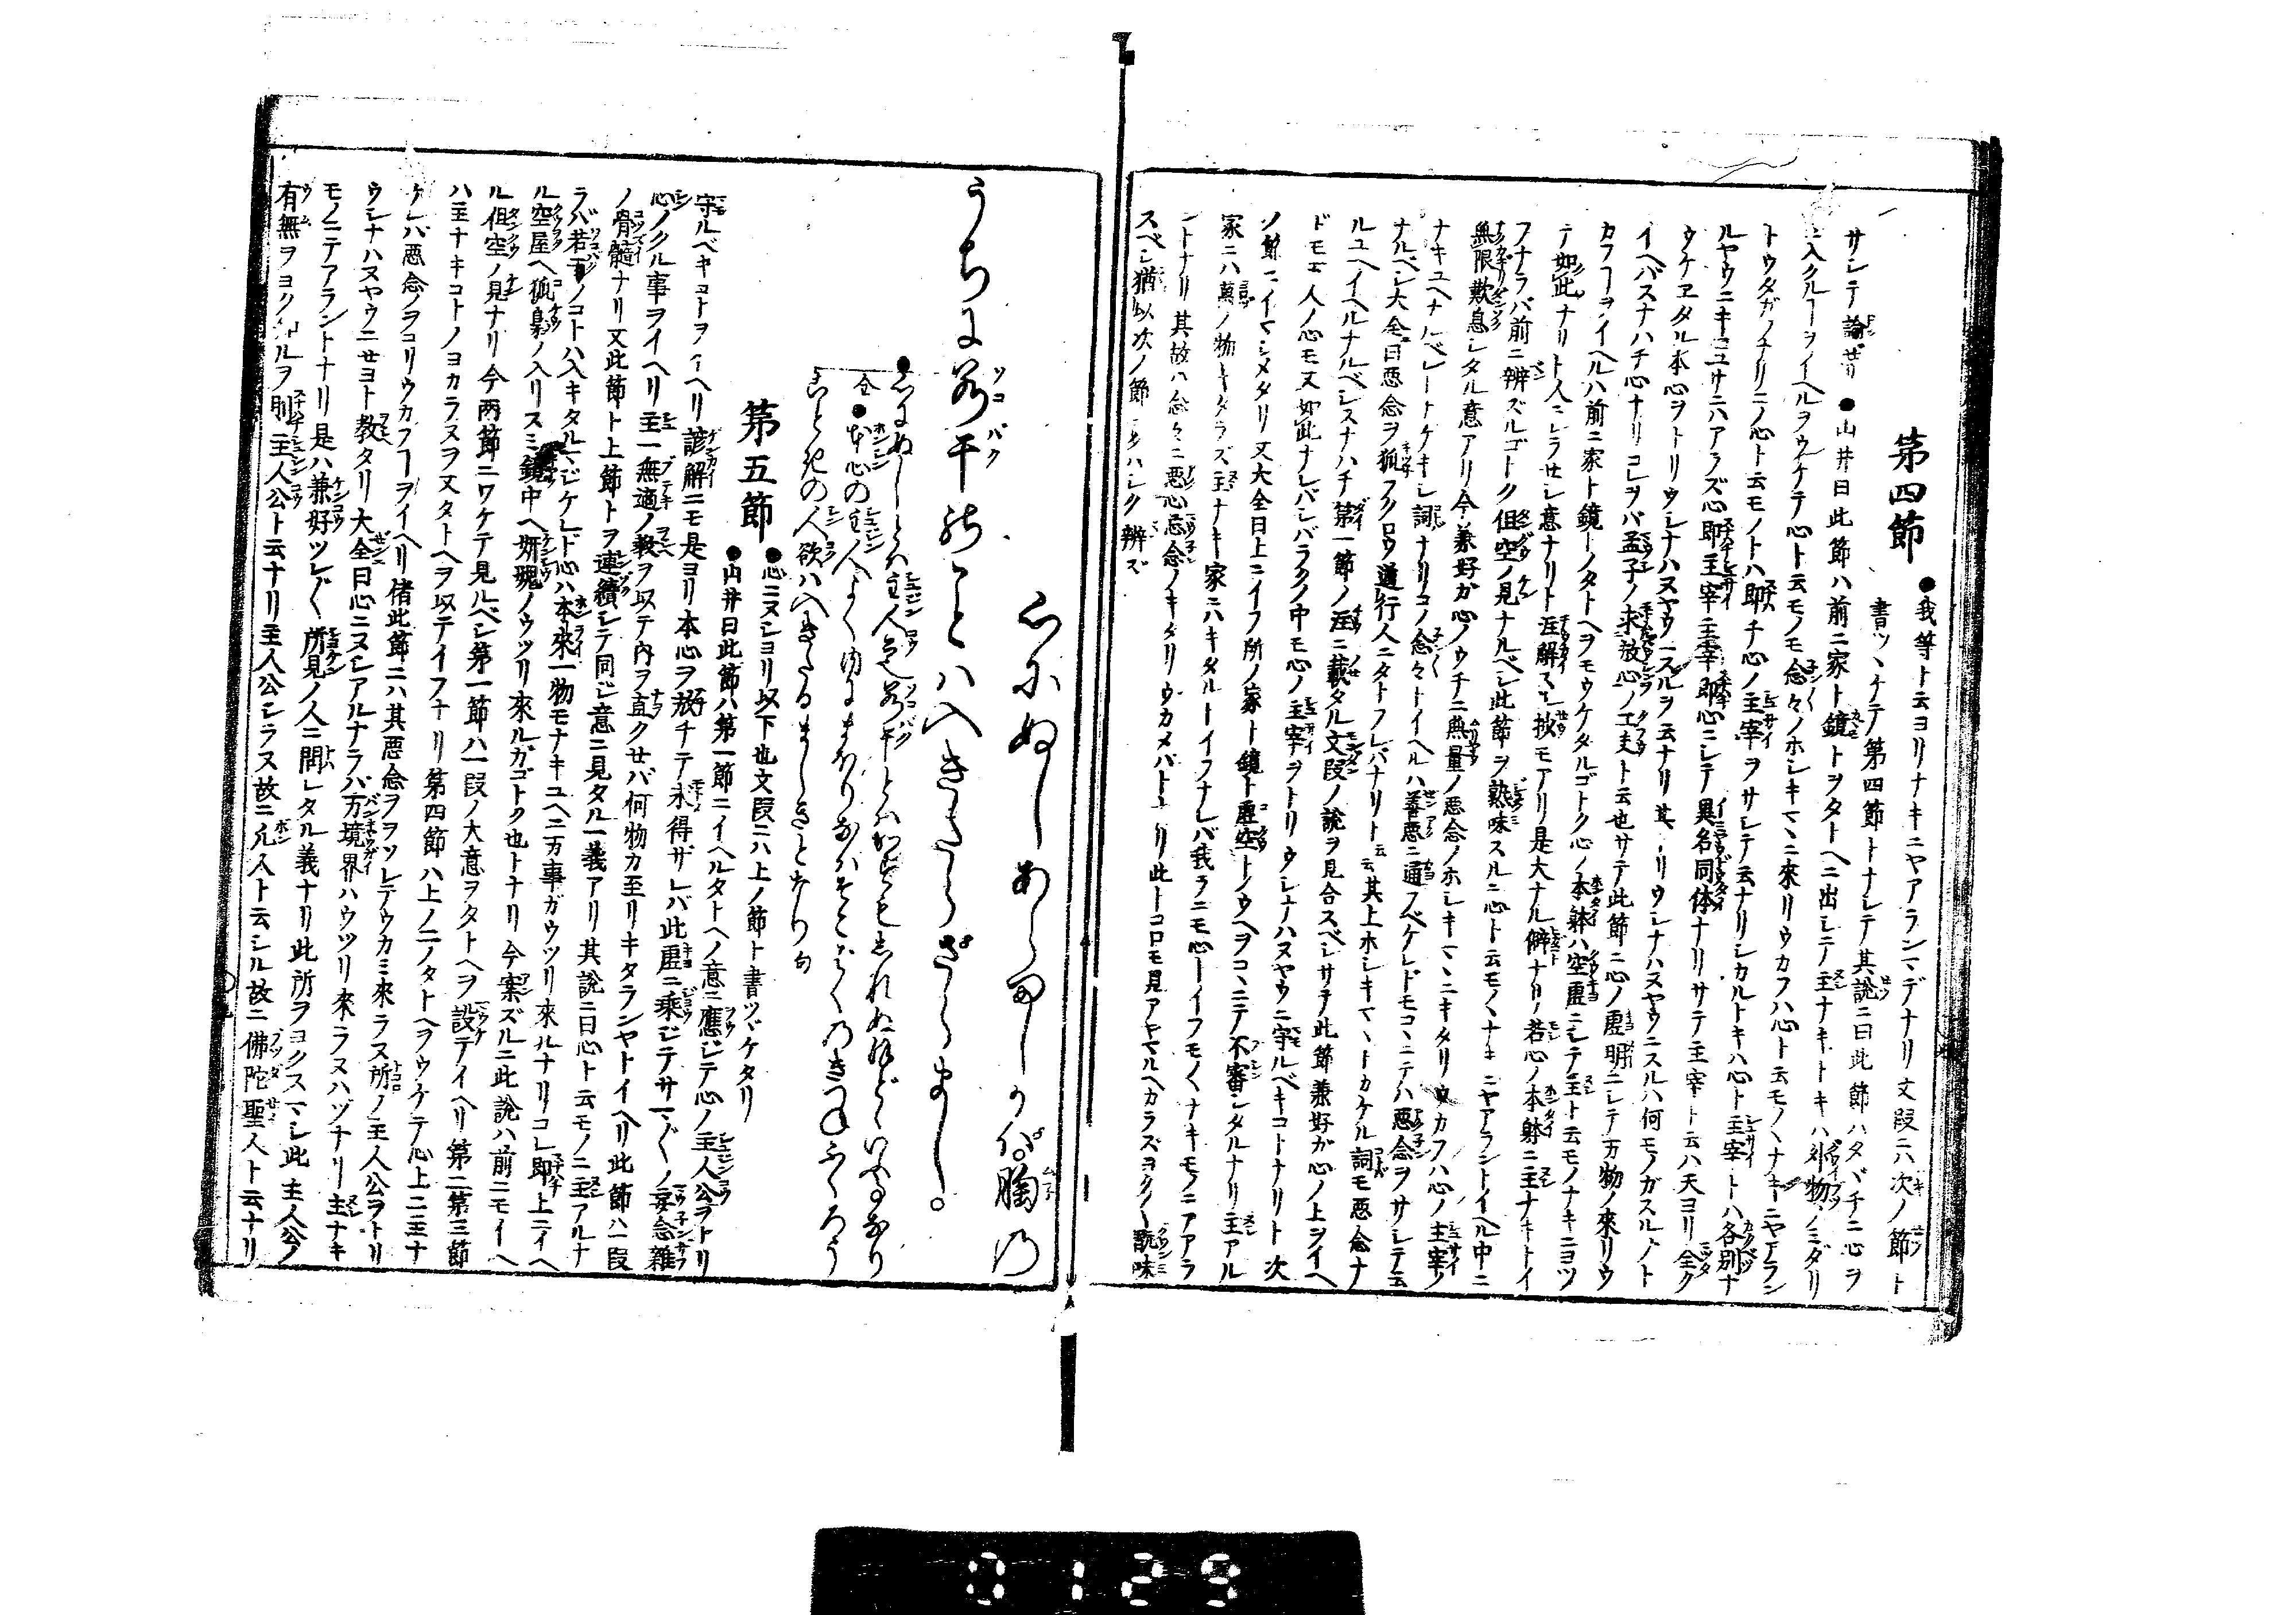 第四節 ●我等ト云ヨリナキニヤアランマデナリ文段ニハ次ノ節ト
書ツヾケテ第四節トナシテ其説ニ曰此節ハタヾチニ心ヲ
サシテ論ゼリ ●山井曰此節ハ前ニ家ト鏡トヲタトヘニ出シテ主ナキトキハ外物ノミダリ
ニ入クルヿヲイヘルヲウケテ心ト云モノモ念々ノホシキマヽニ來リウカフハ心ト云モノヽナキニヤアラン
トウタガヘリ
ルヤウニキコユサニハアラズ心即主宰主宰即心ニシテ異名同体ナリサテ主宰ト云ハ天ヨリ全ク
ウケヱタル本心ヲトリウシナハヌヤウニスルヲ云ナリ其トリウシナハヌヤウニスルハ何モノガスルゾト
イヘバスナハチ心ナリコレヲバ孟子ノ求放心ノ工夫ト云也サテ此節ニ心ノ虚明ニシテ万物ノ來リウ
カフヿヲイヘルハ前ニ家ト鏡トノタトヘヲモウケタルゴトク心ノ本躰ハ空虚ニシテ主ト云モノナキニヨツ
テ如此ナリト人ニシラせシ意ナリト注解セシ按モアリ是大ナル僻ナリ若心ノ本躰ニ主ナキトイ
フナラバ前ニ辨ズルゴトク但空ノ見ナルベシ此節ヲ熟味スルニ心ト云モノヽナキニヤアラントイヘル中ニ
無限歎息シタル意アリ今兼好ガ心ノウチニ無量ノ悪念ノホシキマヽニキタリウカフハ心ノ主宰ノ
ナキユヘナルベシトナゲキシ詞ナリコノ念々トイヘルハ善悪ニ通フベケレドモコヽニテハ悪念ヲサシテ云
ナルベシ大全曰悪念ヲ狐フクロウ道行人ニタトフレバナリト云云其上ホシキマヽトカケル詞モ悪念ナ
ルユヘイヘルナルベシスナハチ第一節ノ注ニ載タル文段ノ説ヲ見合スベシサテ此節兼好ガ心ノ上ヲイヘ
ドモ工人ノ心モ又如此ナレバシバラクノ中モ心ノ主宰ヲトリウシナハヌヤウニ守ルベキコトナリト次
ノ節ニイマシメタリ又大全曰上ニイフ所ノ家ト鏡ト虚空トノウヘヲコヽニテ不審シタルナリ主アル
家ニハ萬ノ物キタラズ主ナキ家ニハキタルトイフナレバ我ラニモ心トイフモノヽナキモノニアアラ
ントナリ其故ハ念々ニ悪心忘念ノキタリウカメバトナリ此トコロモ見アヤマルヘカラズヨク〱 翫味
スベシ猶以次ノ節ニ
心にぬしあらましかば。胸の
うちに若干のことは入きたらざらまし。
●心にぬしとは主人公也若干とはかずもしれぬほどゝいふ事なり
全●本心の主人よく内にまもりなばそとばくのきつねふくろう
ことき の人欲ハ入きたるましきとなり句
第五節 ●心ニヌシヨリ以下也文段ニハ上ノ節ト書ツヾケタリ
●山井曰此節ハ第一節ニイヘルタトヘノ意ニ應ジテ心ノ主人公ヲトリ
守ルベキコトヲイヘリ諺解ニモ是ヨリ本心ヲ放チテ求得ザレバ此虚ニ乗ジテサマ〲ノ妄念雜
心ノクル事ヲイヘリ主一無適ノ教ヲ以テ内ヲ直クせバ何物カ至リキタランヤトイヘリ此節ハ一段
ノ骨髓ナリ又此節ト上節トヲ連續シテ同ジ意ニ見タル一義アリ其説ニ曰心ト云モノニ主アルナ
ラバ若干ノコトハ入キタルマジケレドモ心ハ本來一物モナキユヘニ万事ガウツリ來ルナリコレ即上ニイヘ
ル空屋ヘ狐梟ノ入リスミ鏡中ヘ妍醜ノウツリ來ルガゴトク也トナリ今案ズルニ此説ハ前ニモイヘ
ル但空ノ見ナリ今両節ニワケテ見ルベシ第一節ハ一段ノ大意ヲタトヘヲ設テイヘリ第二第三節
ハ主ナキコトノヨカラヌヲ又タトヘヲ以テイフナリ第四節ハ上ノ二ノタトヘヲウケテ心上ニ主ナ
ケレバ悪念ノヲコリウカフヿヲイヘリ偖此節ニハ其悪念ヲヲツレテウカミ來ラヌ所ノ主人公ヲトリ
ウシナハヌヤウニせヨト教タリ大全曰心ニヌシアルナラバ万境界ハウツリ來ラヌハヅナリ主ナキ
モノニテアラントナリ是ハ兼好ツレ〲所見ノ人ニ問レタル義ナリ此所ヲヨクスマシ此主人公ノ
有無ヲヨク知ルヲ則主人公ト云ナリ主人公シラヌ故ニ凡人ト云シル故ニ佛陀聖人ト云ナリ
0129